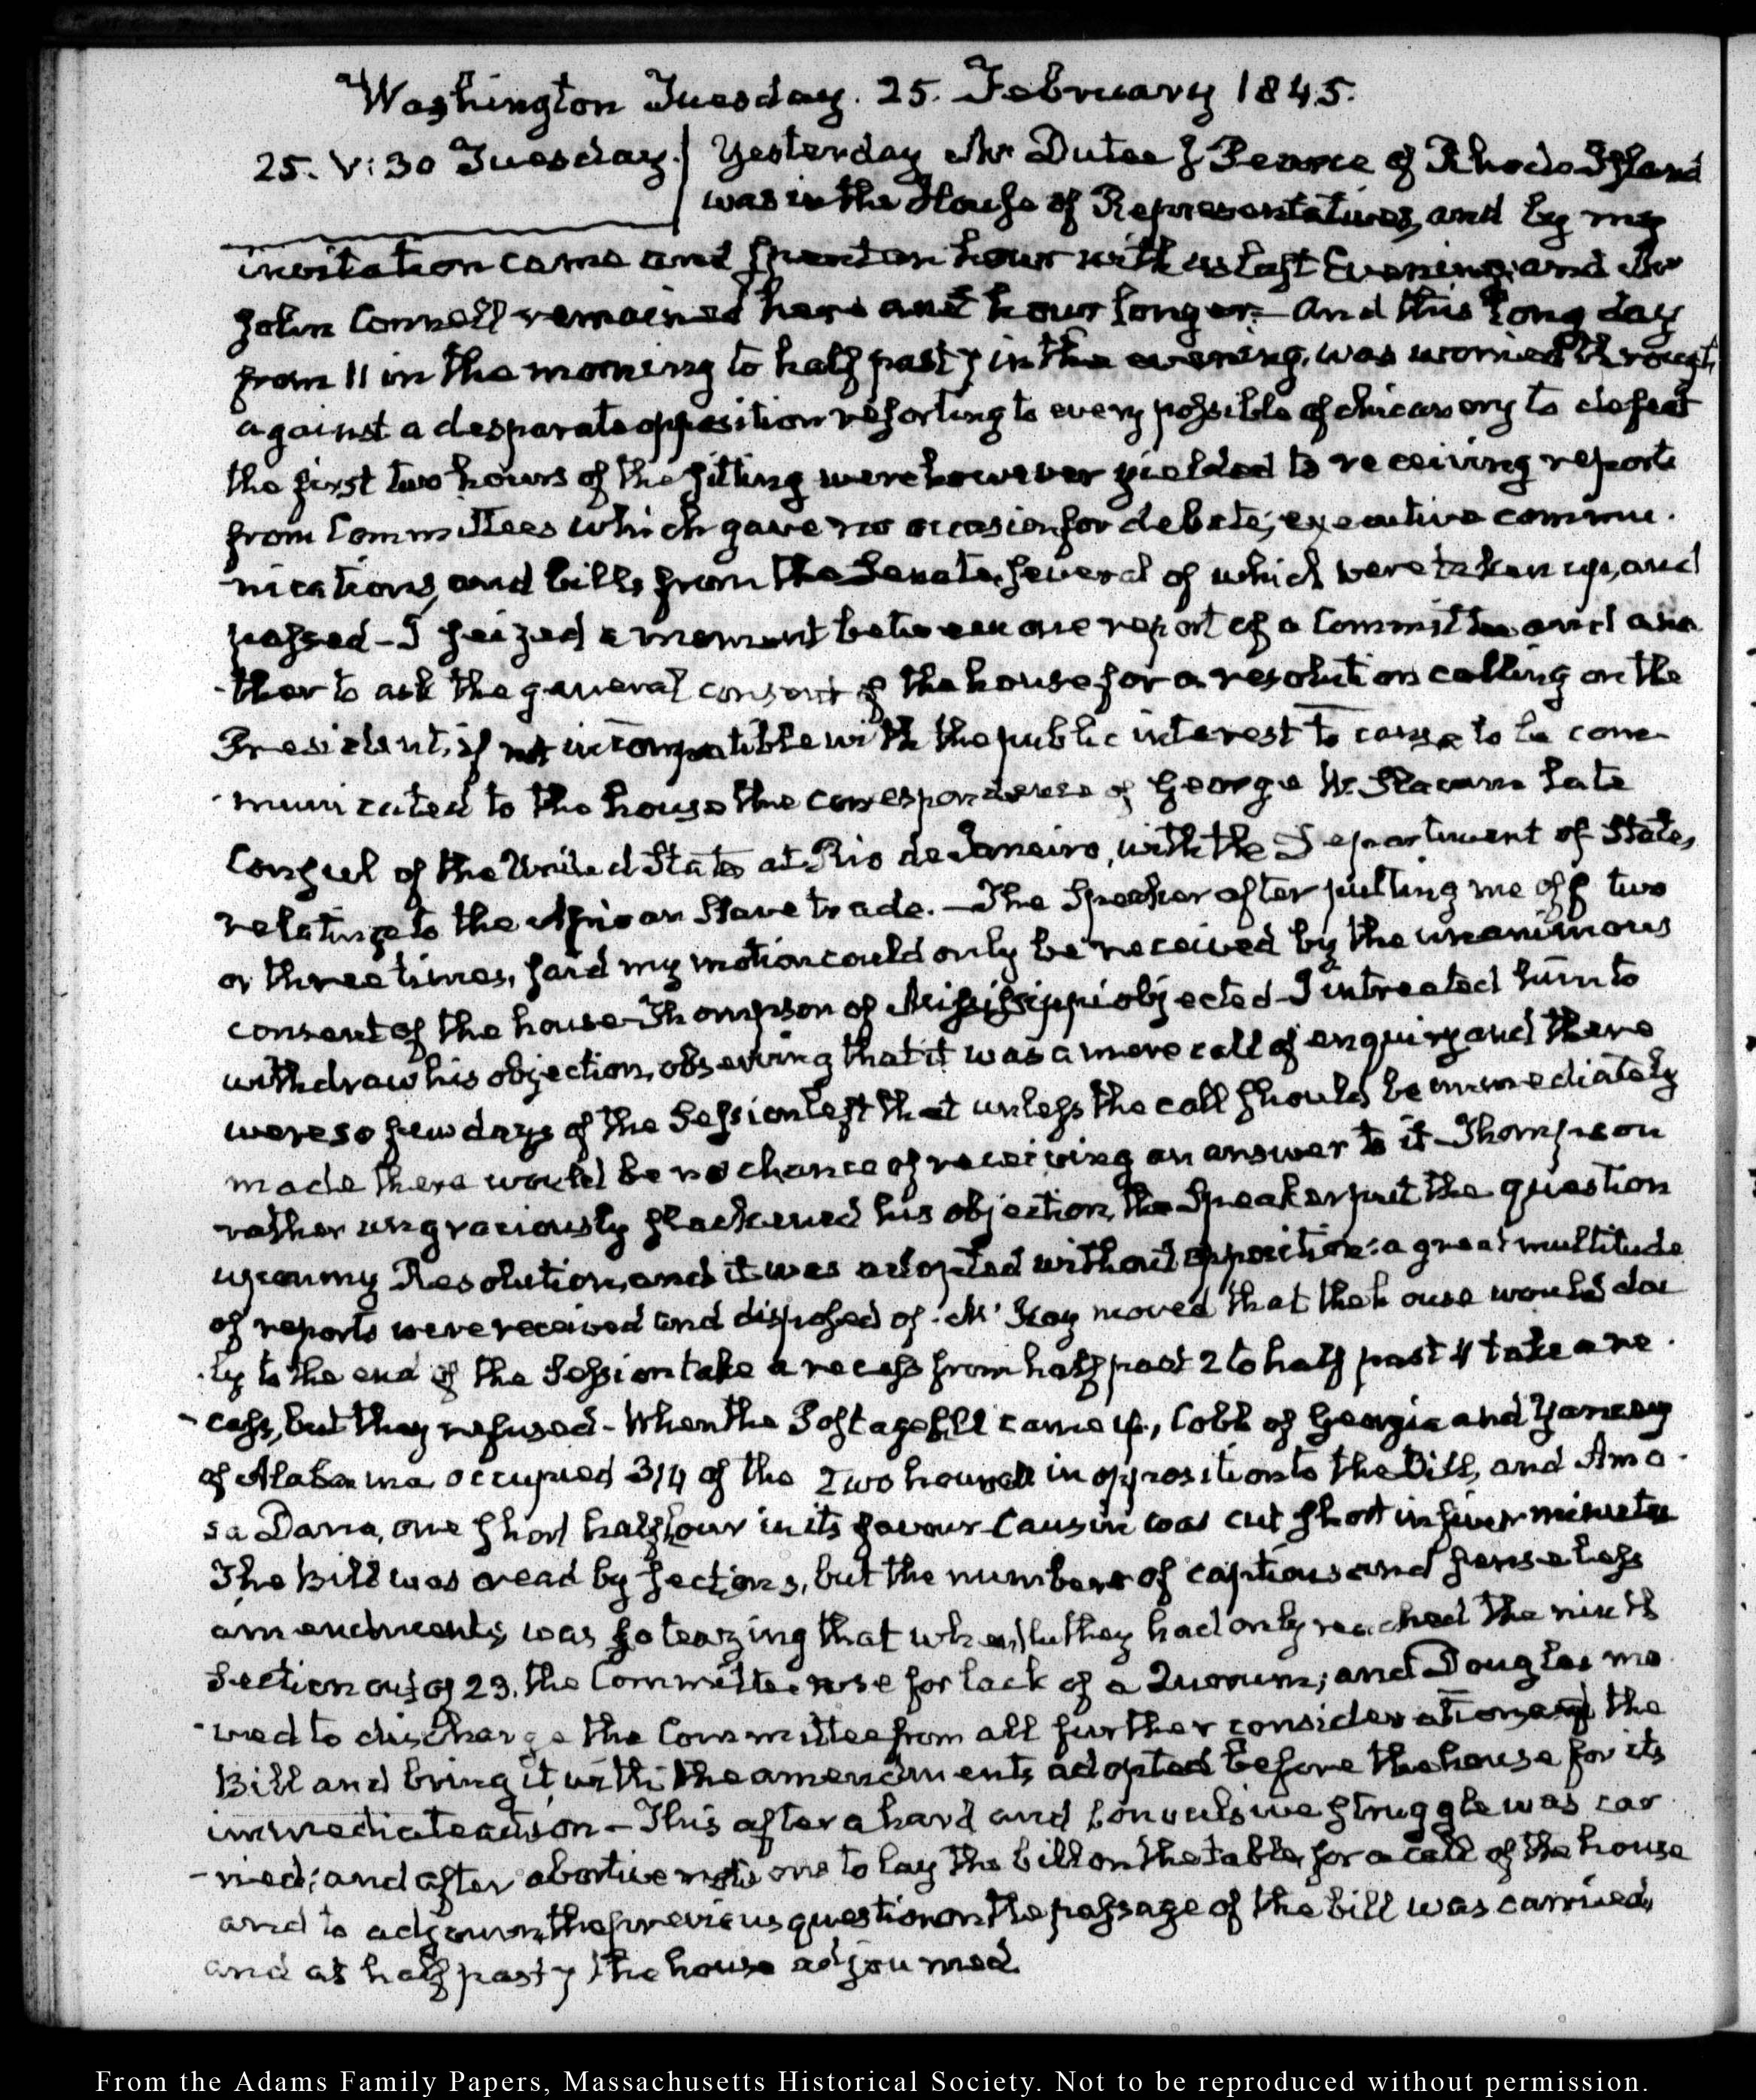 Washington Tuesday. 25. February 1845.
25. V:30 Tuesday. Yesterday Mr Dutee J Pearce of Rhode-Island
was in the House of Representatives, and by my
invitation came and spent an hour with us last Evening; and Mr
John Connell remained here an hour longer. And this long day
from 11 in the morning to half past 7 in the evening, was worried through
against a desparate opposition resorting to every possible of chicanery to defeat
the first two hours of the sitting were however yielded to receiving reports
from Committees which gave no occasion for debate, executive commu-
nications, and bills from the Senate, several of which were taken up, and
passed - I seized a moment between one report of a Committee and ano
-ther to ask the general consent of the house for a resolution calling on the
President, if not incompatible with the public interest to cause to be com-
-municated to the house the correspondence of George W. Slacum late
Consul of the United States at Rio de Janeiro, with the Department of State,
relating to the African Slave trade. - The Speaker after putting me off two
or three times, said my motion could only be received by the unanimous
consent of the house - Thompson of Mississippi objected - I intreated him to
withdraw his objection, observing that it was a mere call of enquiry and there
were so few days of the Session left that unless the call should be immediately
made there would be no chance of receiving an answer to it - Thompson
rather ungraciously slackened his objection, the Speaker put the question
upon my Resolution, and it was adopted without opposition: a great multitude
of reports were received and disposed of. McKay moved that the house would dai
-ly to the end of the Session take a recess from half past 2 to half past 4 take a re-
-cess, but they refused - When the Postage bill came up, Cobb of Georgia and Yancey
of Alabama occupied 3/4 of the two hours in opposition to the Bill, and Ama-
sa Dana, one short half hour in its favour - Causin was cut short in five minutes
The Bill was read by sections, but the numbers of captious and senseless
amendments was so teazing that when they had only reached the ninth
Section out of 23. the Committee rose for lack of a Quorum; and Douglas mo
-ved to discharge the Committee from all further consideration of the
Bill and bring it with the amendments adopted before the house for its
immediate action - This after a hard and convulsive struggle was car
-ried; and after abortive motions to lay the bill on the table, for a call of the house
and to adjourn, the previous question on the passage of the bill was carried,
and at half past 7 the house adjourned.
From the Adams Family Papers, Massachusetts Historical Society. Not to be reproduced without permission.